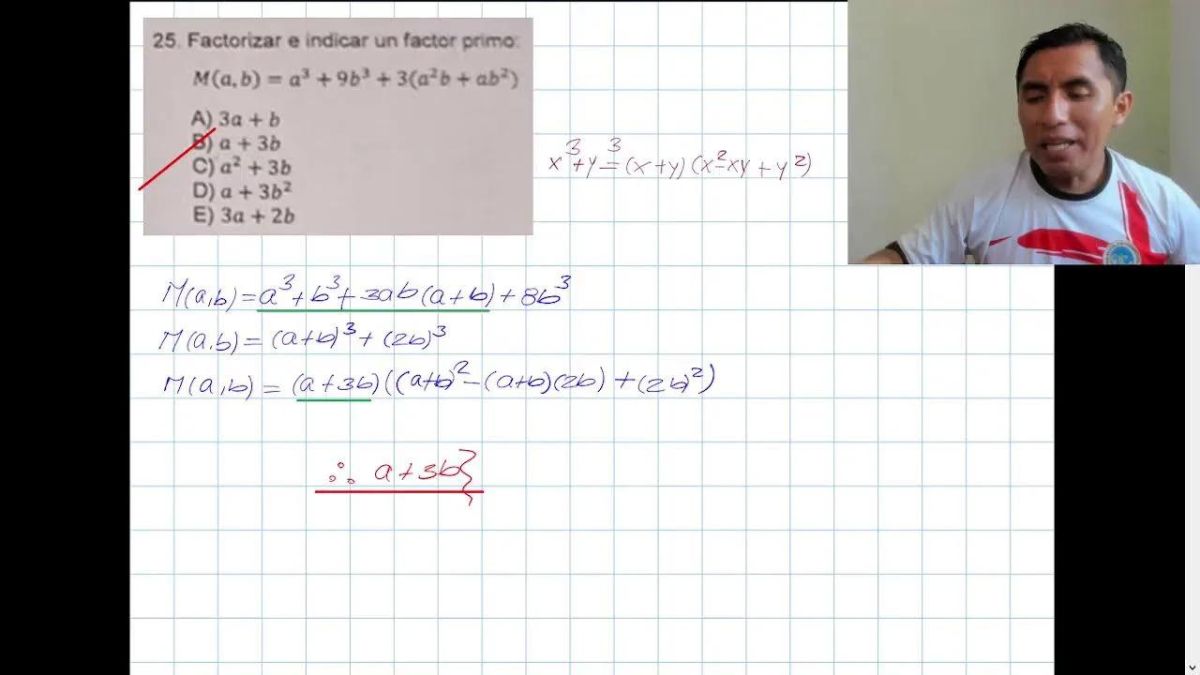 25. Factorizar e indicar un factor primo:
M(a,b) = a³ + 9b³ + 3(a²b + ab²)
A) 3a + b
B) a + 3b
C) a² + 3b
D) a + 3b²
E) 3a + 2b
x³+y³=(x+y)(x²-xy+y²)
M(a,b)=a³+b³+3ab(a+b)+8b³
M(a,b)=(a+b)³+(2b)³
M(a,b)=(a+3b)((a+b)²-(a+b)(2b)+(2b)²)
∴ a+3b